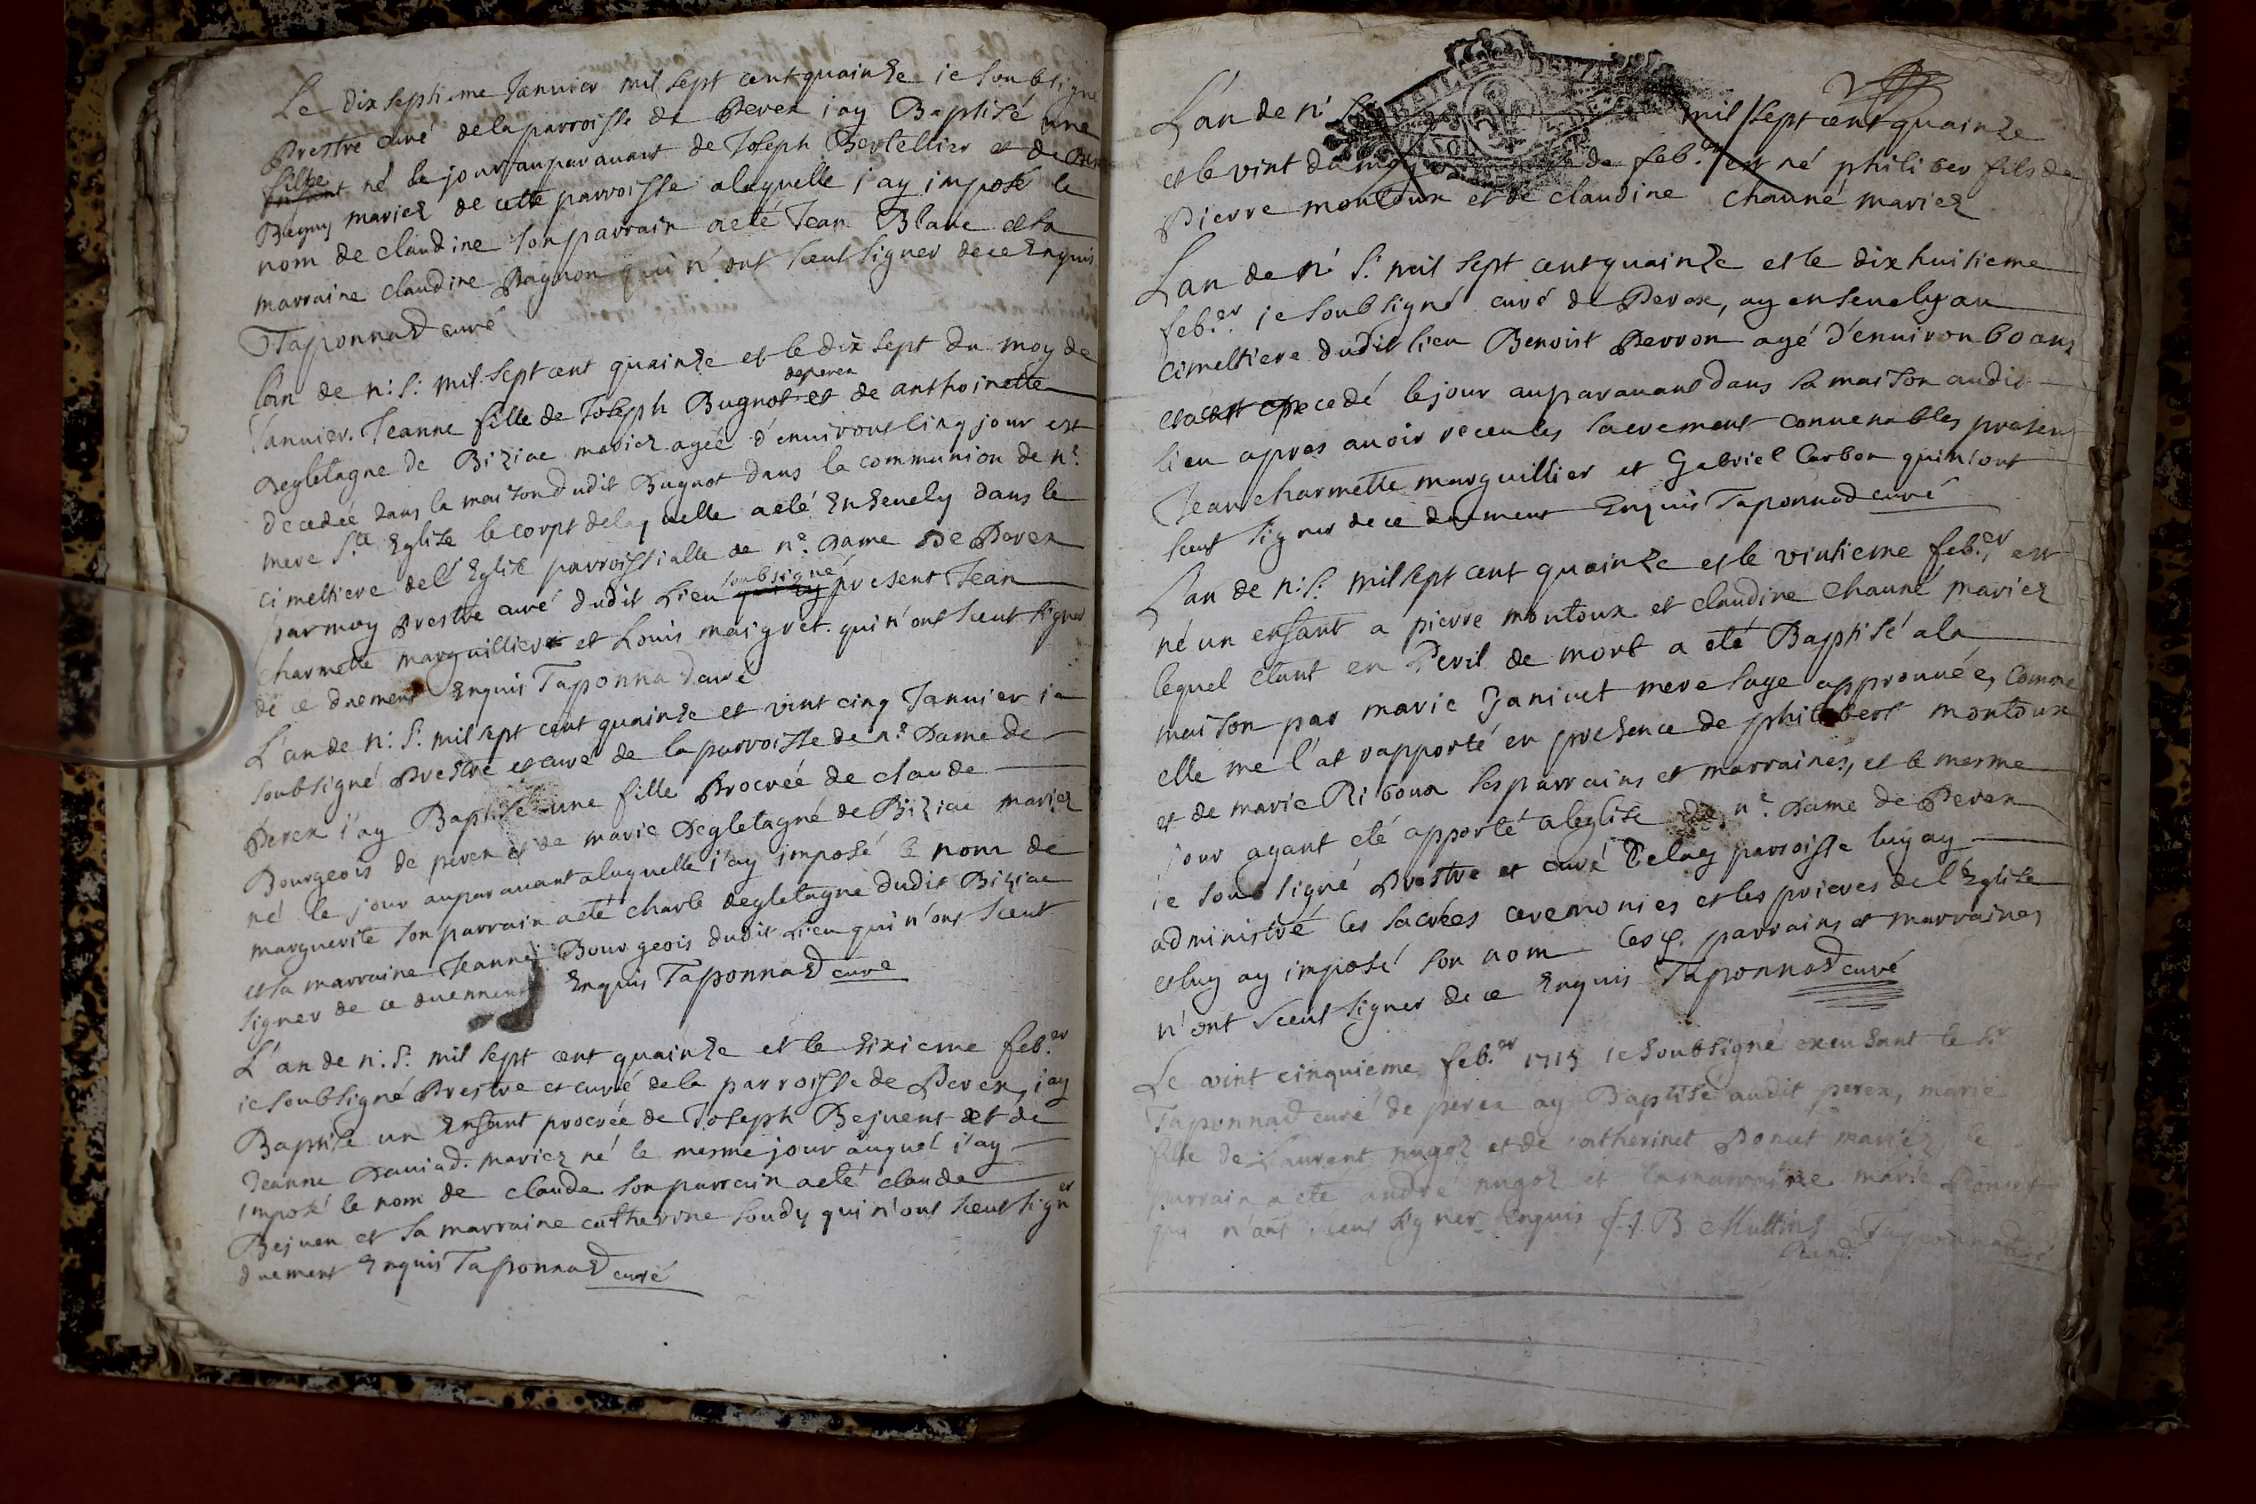 Le dix septieme Janvier mil sept cent quainze ie soubsigne
Prestre curé de la parroisse de Perex i ay Baptisé une
fille
enfant né le jour auparavant de Joseph Bertellier et de
mariez de cette parroisse a laquelle i ay imposé le
nom de claudine son parrain a eté Jean Blanc et sa
marraine claudine Pagnon qui n'ont sceut signer de ce Enquis
Taponnad curé
L'an de n: S: mil sept cent quainze et le dix sept du moy de
deperex
Janvier. Jeanne fille de Joseph Bugnot et de anthoinette
Degletagne de Biziac mariez agée d'environt cinq jour est
decedée dans la maison dudit Bugnot dans la communion de n.e
mere S.te Eglise le corpt de laquelle a eté Ensevely dans le
cimeltiere de l'Eglise parroissialle de n.e Dame De Perex
soubsigné
par moy Prestre curé dudit Lieu present Jean
charmette marguillier et Louis maigret. qui n'ont sceut signer
de ce duement Enquis Taponnad curé
L'an de n: S: mil sept cent quainze et vint cinq Janvier ie
soubsigné Prestre et curé de la parroisse de n.e Dame de
Perex i'ay Baptisé une fille Procrée de claude
Bourgeois de perex et de marie Degletagné de Biziac mariez
né le jour auparavant a laquelle i'ay imposé le nom de
marguerite son parrain a eté charle degletagne dudit Biziac
et sa marraine Jeanne Bourgeois dudit Lieu qui n'ont sceut
signer de ce duement Enquis Taponnad curé
L'an de n: S: mil sept cent quainze et le sixieme feb.er
ie soubsigné Prestre et curé de la parroisse de Perex, i ay
Baptisé un Enfant procrée de Joseph Bejuent et de
Jeanne Daviad. mariez né le mesme jour auquel i'ay
imposé le nom de claude son parrain a eté claude
Bejuen et sa marraine catherine Loudy qui n'ont sceut signer
duement Enquis Taponnad curé
L'an de n' mil sept cent quainze
et le vint du de feb.er est né philiber fils de
Pierre montoux et de claudine chauné mariez
L'an de n' S: mil sept cent quainze et le dix huitieme
feb.er ie soubsigné curé de Perex, ay ensevely au
cimeltiere dudit lieu Benoist Perron agé d'environ 60 ans
decedé le jour auparavant dans sa maison audit
lieu apres avoir receu les sacrement convenables present
Jean charmette marguillier et Gabriel Carbon qui n'ont
sceut signer de ce duement Enquis Taponnad curé
L'an de n: S: mil sept cent quainze et le vintieme feb.er est
né un enfant a pierre montoux et claudine chauné mariez
lequel étant en Peril de mort a eté Baptisé a la
maison par marie Janicet mere sage approuvée, comme
elle me l'at rapporté en presence de philibert montoux
et de marie Riboux ses parrains et marraines, et le mesme
jour ayant eté apporté a leglise de n.e Dame de Perex
ie soubsigné Prestre et curé de lad parroisse luy ay
administré les sacrées ceremonies et les prieres de l'Eglise
et luy ay imposé son nom parrains et marraines
n'ont sceut signer de ce Enquis Taponnad curé
Le vint cinquieme feb.er 1715 ie soubsigné le S.r
Taponnad curé de perex ay Baptisé audit perex, marie
fille de Laurent nugoz et de catherinet Ponset mariez, le
parrain a ete andré nugoz et la marraine marie Ponset
qui n'ont sceut signer enquis B. Taponnad curé